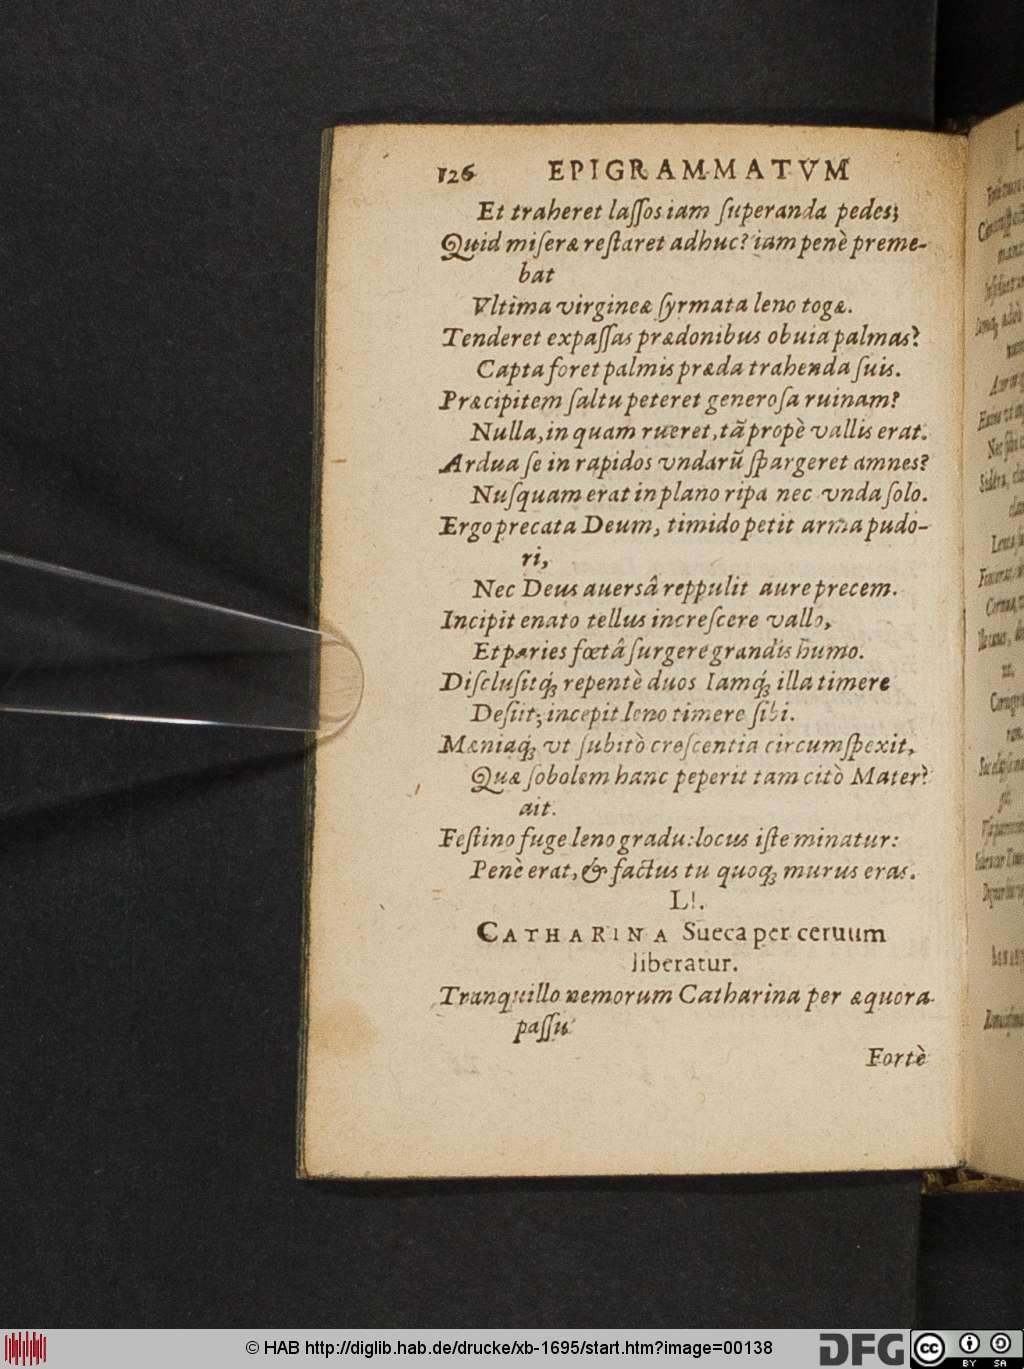 126 EPIGRAMMATVM
Et traheret laſſos iam ſuperanda pedes;
Quid miſeræ reſtaret adhuc? iam penè preme-
bat
Vltima virgineæ ſyrmata leno togæ.
Tenderet expaſſas prædonibus obuia palmas?
Capta foret palmis præda trahenda ſuis.
Præcipitem ſaltu peteret generoſa ruinam?
Nulla, in quam rueret, tã propè vallis erat.
Ardua ſe in rapidos vndarũ ſpargeret amnes?
Nuſquam erat in plano ripa nec vnda ſolo.
Ergo precata Deum, timido petit arma pudo-
ri,
Nec Deus auersâ reppulit aure precem.
Incipit enato tellus increſcere vallo,
Et paries fœtâ ſurgere grandis humo.
Diſcluſitq́; repentè duos Iamq́; illa timere
Deſiit; incepit leno timere ſibi.
Mæniaq́; vt ſubitò creſcentia circumſpexit,
Quæ ſobolem hanc peperit tam citò Mater?
ait.
Feſtino fuge leno gradu: locus iſte minatur:
Penè erat, & factus tu quoq; murus eras.
LI.
CATHARINA Sueca per ceruum
liberatur.
Tranquillo nemorum Catharina per æquora
paſſu
Fortè
© HAB http://diglib.hab.de/drucke/xb-1695/start.htm?image=00138
DFG
cc BY SA